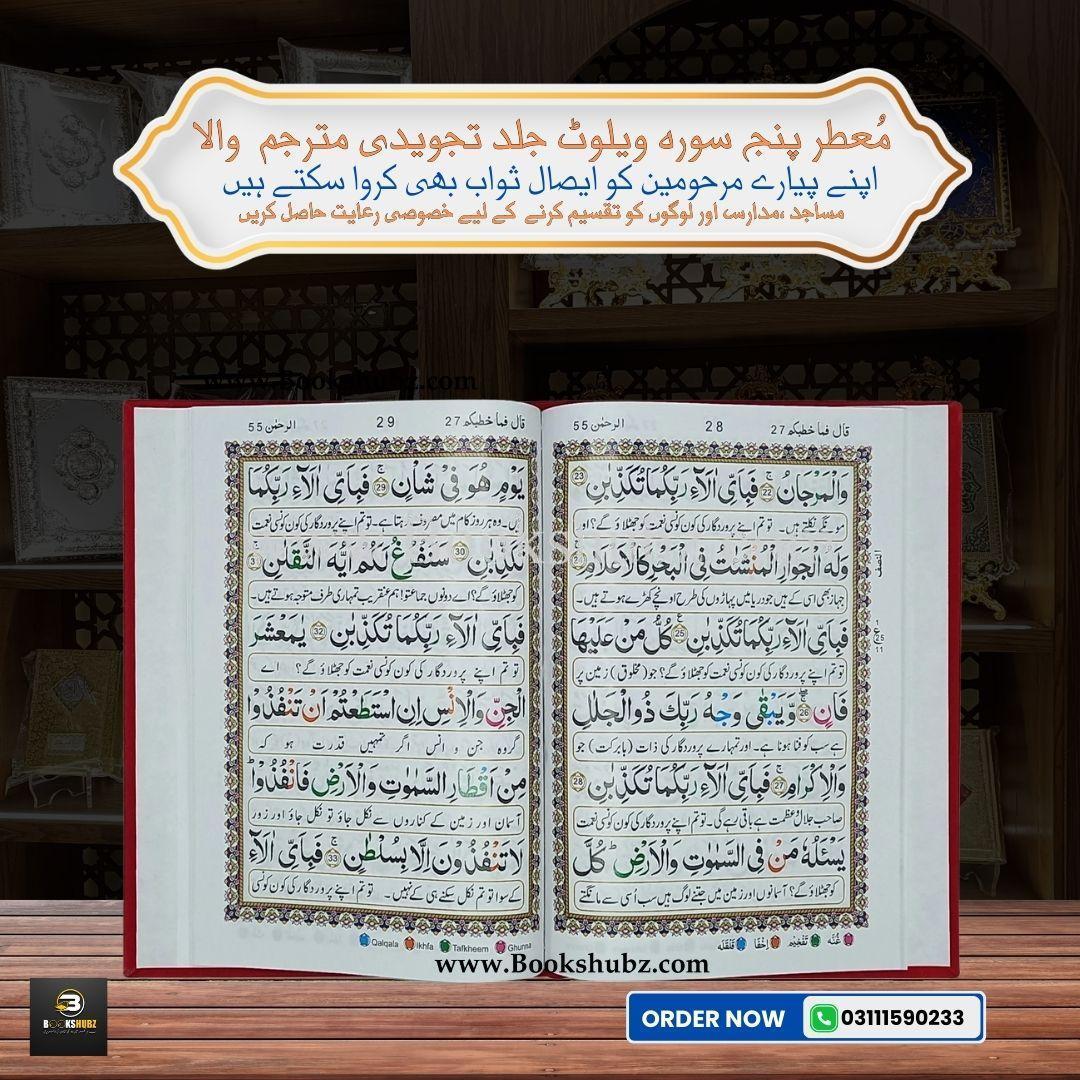 مُعطر پنج سورہ ویلوٹ جلد تجویدی مترجم والا
اپنے پیارے مرحومین کو ایصال ثواب بھی کروا سکتے ہیں
مساجد ،مدارس اور لوگوں کو تقسیم کرنے کے لیے خصوصی رعایت حاصل کریں
www.Bookshubz.com
قال فما خطبکم 27
28
الرحمٰن 55
وَالْمَرْجَانُ ۚ 22 فَبِاَيِّ اٰلَآءِ رَبِّكُمَا تُكَذِّبٰنِ 23
مونگے نکلتے ہیں۔ تو تم اپنے پروردگار کی کون کونسی نعمت کو جھٹلاؤ گے؟ اور
وَلَهُ الْجَوَارِ الْمُنْشَئٰتُ فِي الْبَحْرِ كَالْاَعْلَامِ ۚ
جہاز بھی اسی کے ہیں جو دریا میں پہاڑوں کی طرح اونچے کھڑے ہوتے ہیں۔
فَبِاَيِّ اٰلَآءِ رَبِّكُمَا تُكَذِّبٰنِ ۧ 25 كُلُّ مَنْ عَلَيْهَا
تو تم اپنے پروردگار کی کون کونسی نعمت کو جھٹلاؤ گے؟ جو (مخلوق) زمین پر
فَانٍ ۖۚ 26 وَّيَبْقٰى وَجْهُ رَبِّكَ ذُو الْجَلٰلِ
ہے سب کو فنا ہونا ہے۔ اور تمہارے پروردگار کی ذات (بابرکت) جو
وَالْاِكْرَامِ ۚ 27 فَبِاَيِّ اٰلَآءِ رَبِّكُمَا تُكَذِّبٰنِ 28
صاحب جلال و عظمت ہے باقی رہے گی۔ تو تم اپنے پروردگار کی کون کونسی نعمت
يَسْـَٔلُهٗ مَنْ فِي السَّمٰوٰتِ وَالْاَرْضِ ؕ كُلَّ
کو جھٹلاؤ گے؟ آسمانوں اور زمین میں جتنے لوگ ہیں سب اُسی سے مانگتے
النصف
غُنَّہ تَفْخِیم اِخْفَا قَلْقَلَه
قال فما خطبکم 27
29
الرحمٰن 55
يَوْمٍ هُوَ فِيْ شَاْنٍ ۚ 29 فَبِاَيِّ اٰلَآءِ رَبِّكُمَا
ہیں۔ وہ ہر روز کام میں مصروف رہتا ہے۔ تو تم اپنے پروردگار کی کون کونسی نعمت
تُكَذِّبٰنِ 30 سَنَفْرُغُ لَكُمْ اَيُّهَ الثَّقَلٰنِ ۚ
کو جھٹلاؤ گے؟ اے دونوں جماعتو! ہم عنقریب تمہاری طرف متوجہ ہوتے ہیں۔
فَبِاَيِّ اٰلَآءِ رَبِّكُمَا تُكَذِّبٰنِ 32 يٰمَعْشَرَ
تو تم اپنے پروردگار کی کون کونسی نعمت کو جھٹلاؤ گے؟ اے
الْجِنِّ وَالْاِنْسِ اِنِ اسْتَطَعْتُمْ اَنْ تَنْفُذُوْا
گروہ جن و انس اگر تمہیں قدرت ہو کہ
مِنْ اَقْطَارِ السَّمٰوٰتِ وَالْاَرْضِ فَانْفُذُوْا ؕ
آسمان اور زمین کے کناروں سے نکل جاؤ تو نکل جاؤ اور زور
لَا تَنْفُذُوْنَ اِلَّا بِسُلْطٰنٍ ۚ 33 فَبِاَيِّ اٰلَآءِ
کے سوا تو تم نکل سکنے ہی کے نہیں۔ تو تم اپنے پروردگار کی کون کونسی
Qalqala Ikhfa Tafkheem Ghunna
www.Bookshubz.com
BOOKSHUBZ
ORDER NOW
03111590233